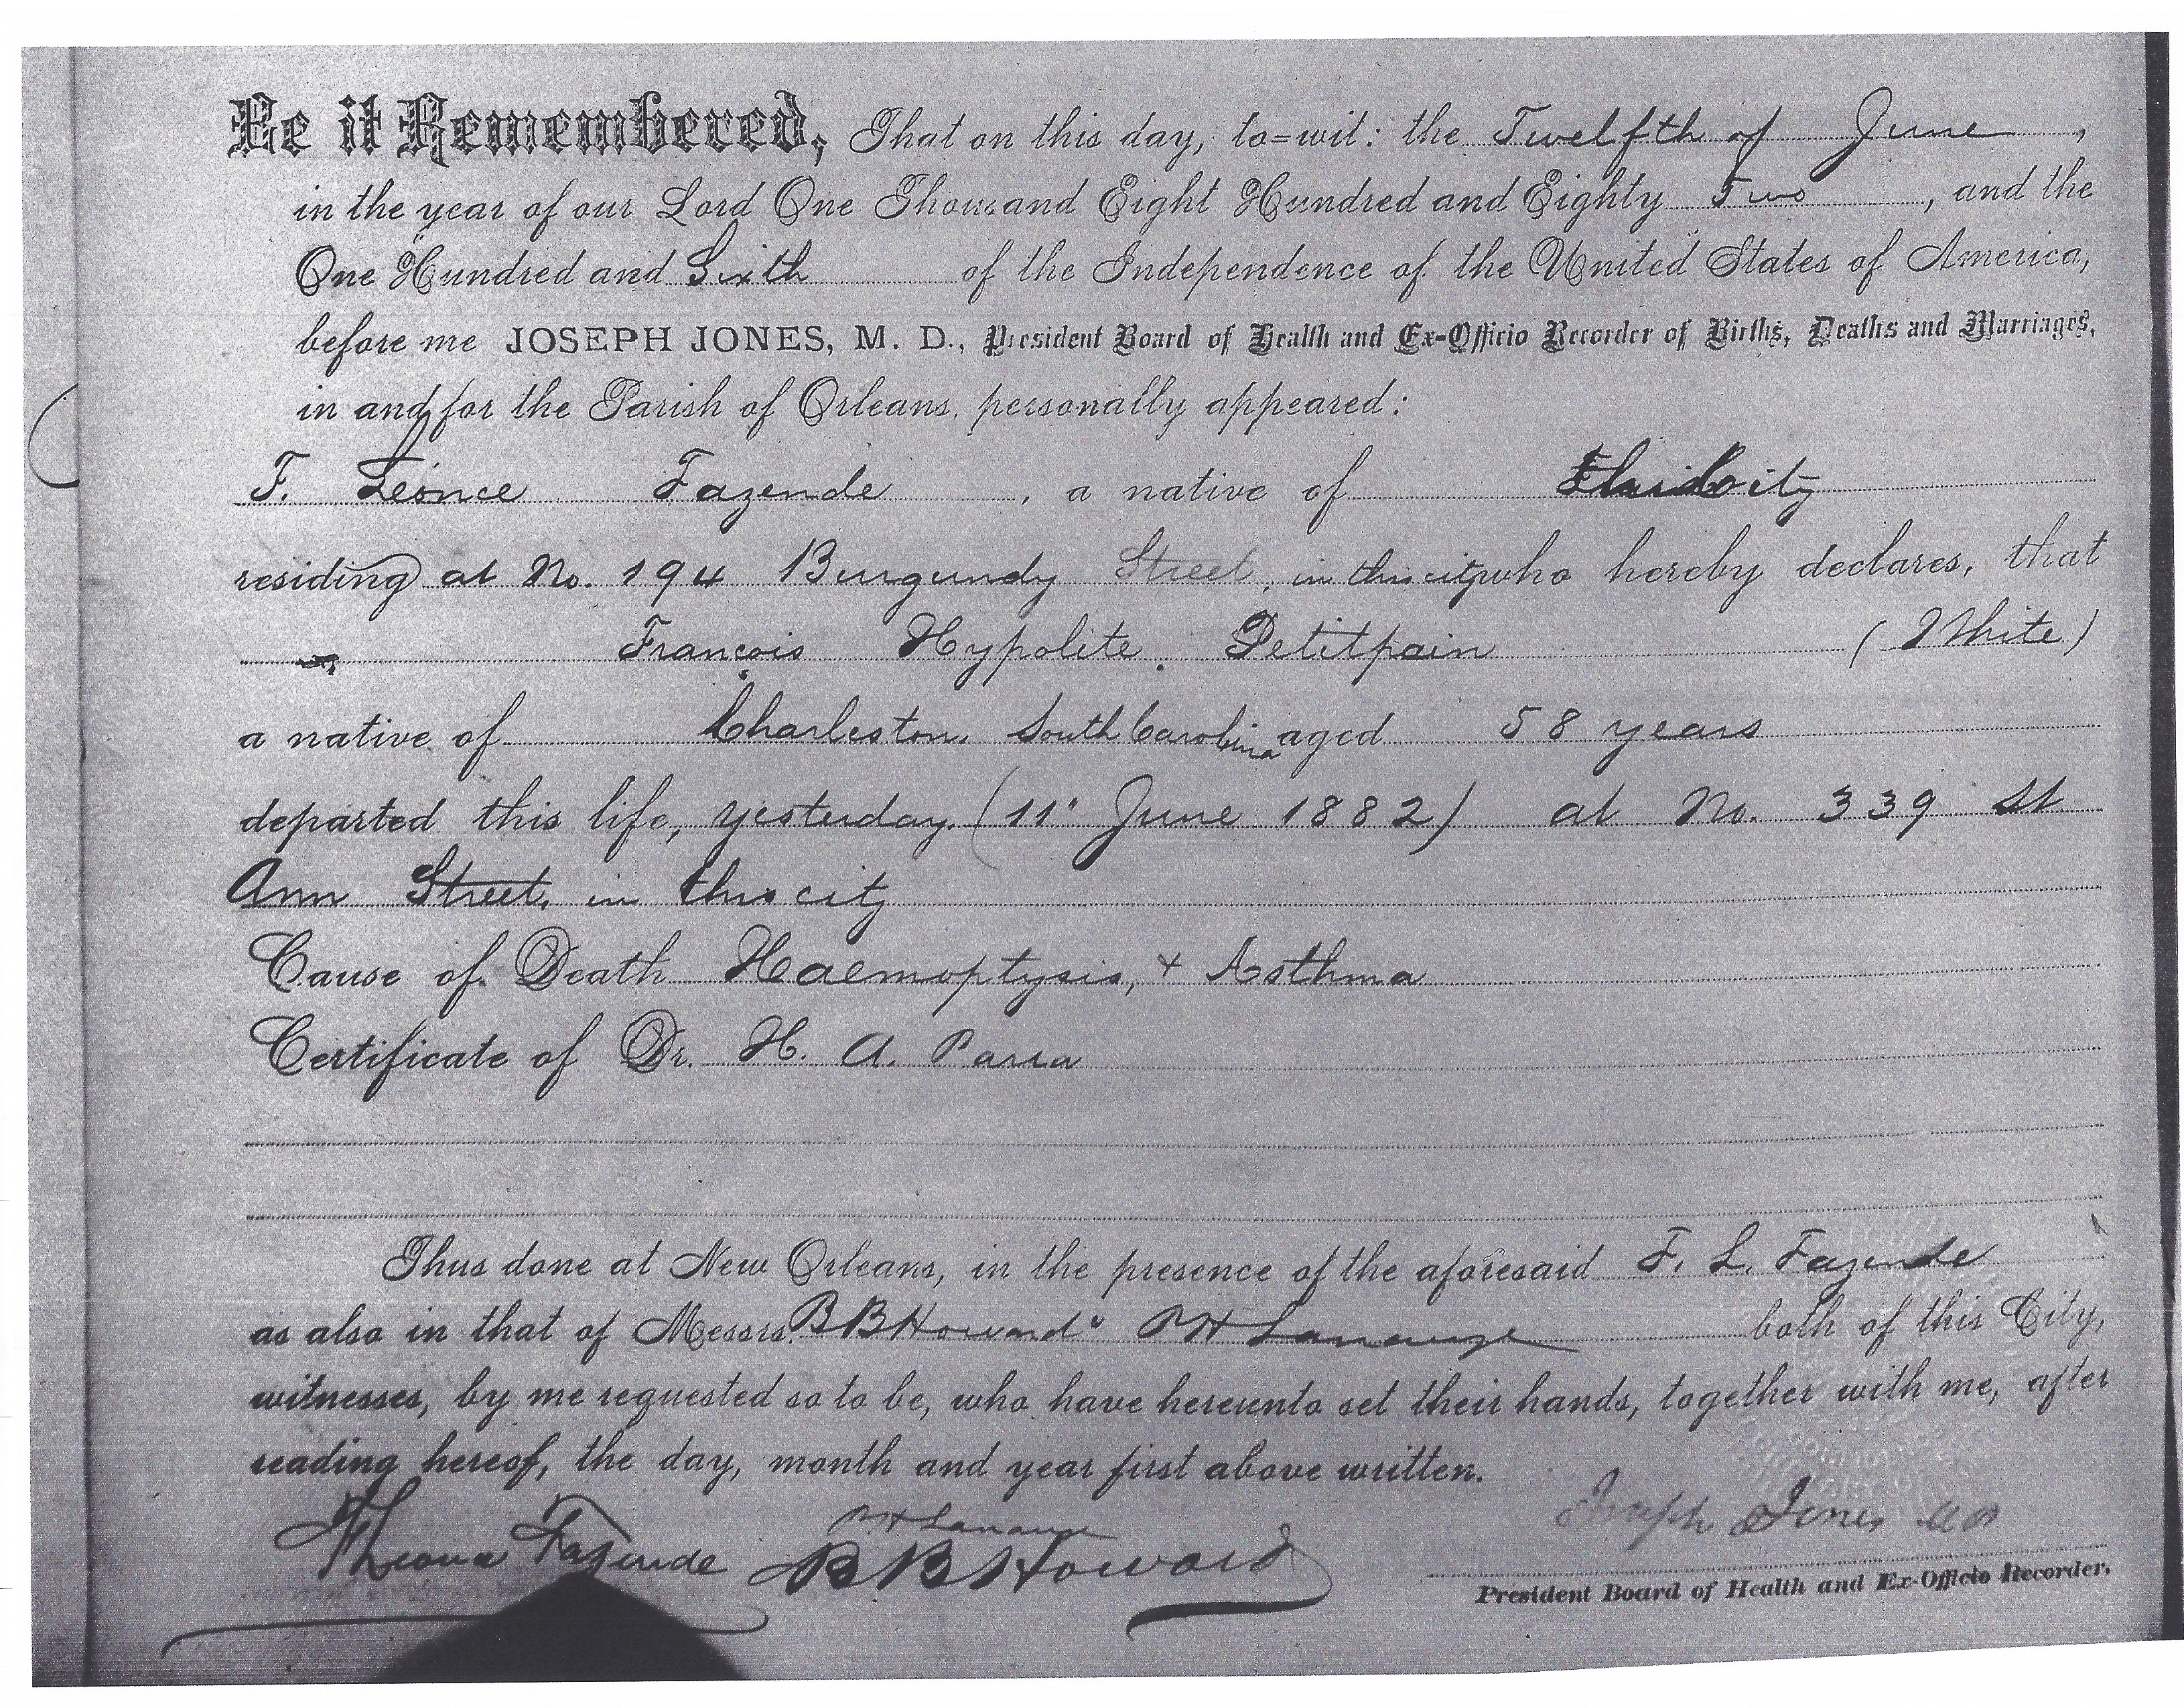 Be it Remembered, That on this day, to=wit: the Twelfth of June,
in the year of our Lord One Thousand Eight Hundred and Eighty Two, and the
One Hundred and Sixth of the Independence of the United States of America,
before me JOSEPH JONES, M. D., President Board of Health and Ex-Officio Recorder of Births, Deaths and Marriages,
in and for the Parish of Orleans, personally appeared:
F. Léonce Fazende, a native of this city
residing at No. 194 Burgundy Street, in this city who hereby declares, that
François Hypolite Petitpain (White)
a native of Charleston, South Carolina aged 58 years
departed this life, yesterday, (11" June 1882) at No. 339 St
Ann Street, in this city
Cause of Death Haemoptysis, + Asthma
Certificate of Dr. H. A. Parra
Thus done at New Orleans, in the presence of the aforesaid F. L. Fazende
as also in that of Messrs. B B Howard " P H Lanauze both of this City,
witnesses, by me requested so to be, who have hereunto set their hands, together with me, after
reading hereof, the day, month and year first above written.
P H Lanauze
Fazende B B Howard Joseph Jones MD
President Board of Health and Ex-Officio Recorder.